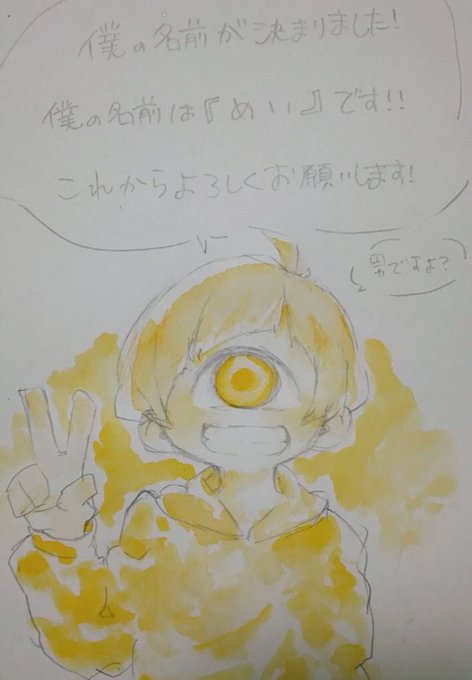 僕の名前が決まりました!
僕の名前は『めい』です!!
これからよろしくお願いします!
男ですよ?